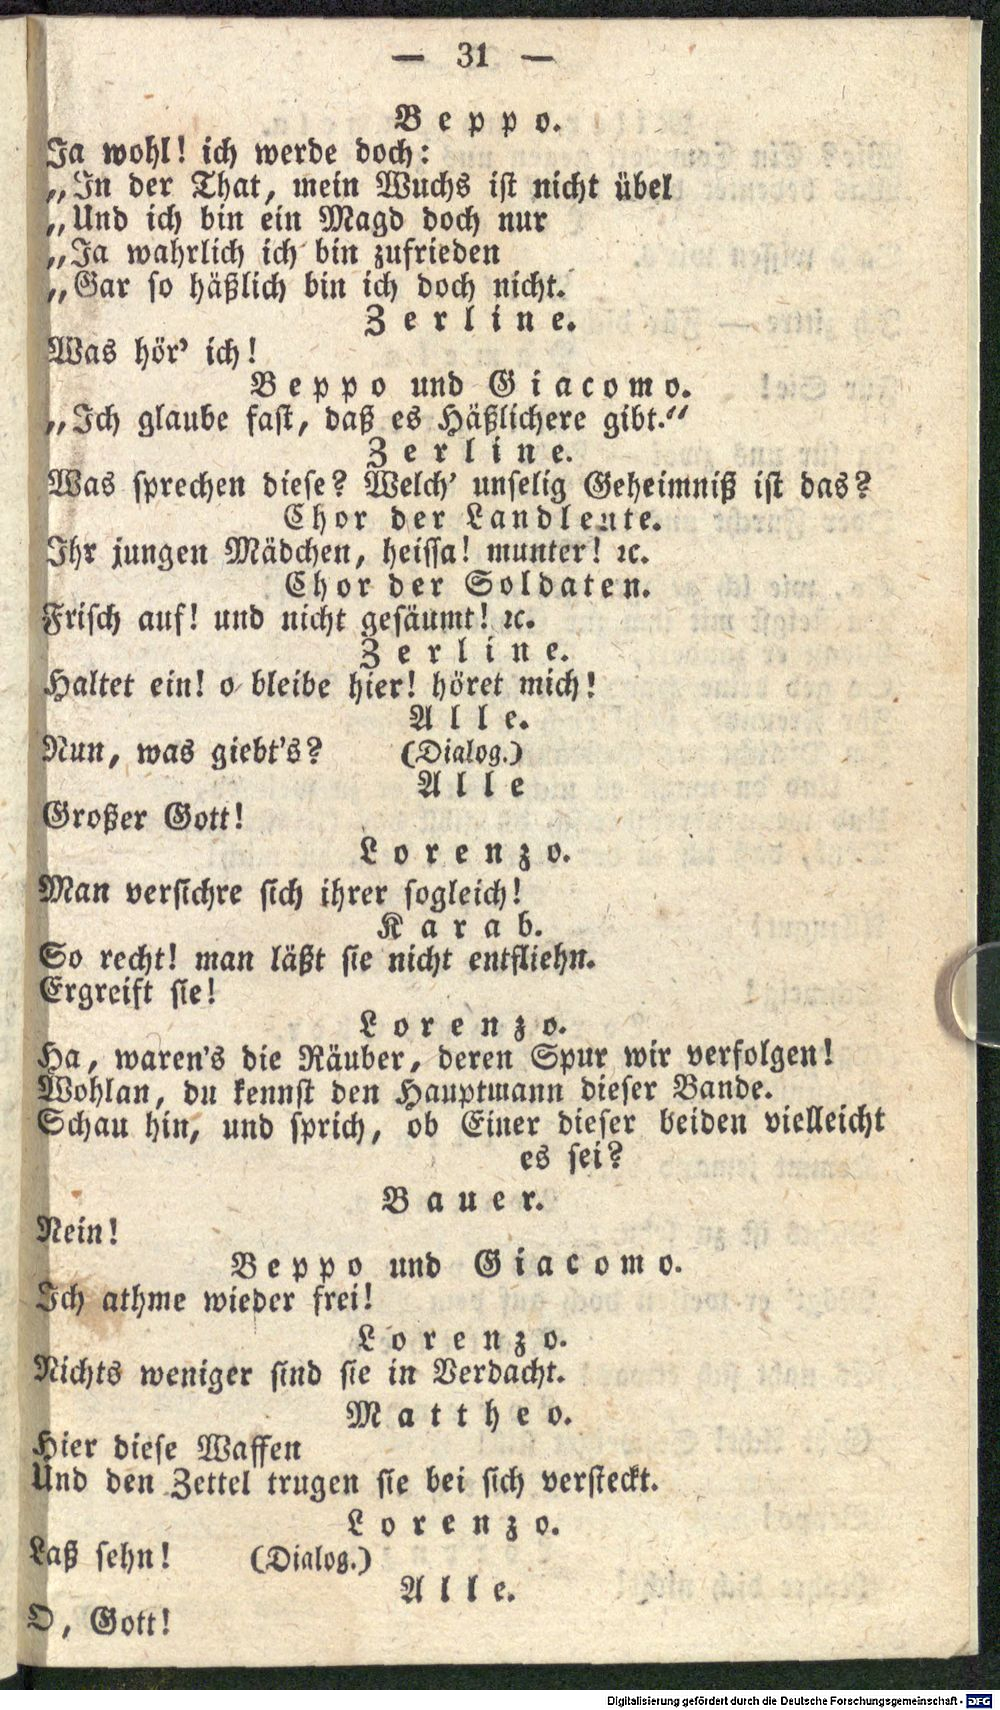 — 31 —
Beppo.
Ja wohl! ich werde doch:
„In der That, mein Wuchs ist nicht übel
„Und ich bin ein Magd doch nur
„Ja wahrlich ich bin zufrieden
„Gar so häßlich bin ich doch nicht.
Zerline.
Was hör' ich!
Beppo und Giacomo.
„Ich glaube fast, daß es Häßlichere gibt.“
Zerline.
Was sprechen diese? Welch' unselig Geheimniß ist das?
Chor der Landleute.
Ihr jungen Mädchen, heissa! munter! ꝛc.
Chor der Soldaten.
Frisch auf! und nicht gesäumt! ꝛc.
Zerline.
Haltet ein! o bleibe hier! höret mich!
Alle.
Nun, was giebt's? (Dialog.)
Alle
Großer Gott!
Lorenzo.
Man versichre sich ihrer sogleich!
Karab.
So recht! man läßt sie nicht entfliehn.
Ergreift sie!
Lorenzo.
Ha, waren's die Räuber, deren Spur wir verfolgen!
Wohlan, du kennst den Hauptmann dieser Bande.
Schau hin, und sprich, ob Einer dieser beiden vielleicht
es sei?
Bauer.
Nein!
Beppo und Giacomo.
Ich athme wieder frei!
Lorenzo.
Nichts weniger sind sie in Verdacht.
Mattheo.
Hier diese Waffen
Und den Zettel trugen sie bei sich versteckt.
Lorenzo.
Laß sehn! (Dialog.)
Alle.
O, Gott!
Digitalisierung gefördert durch die Deutsche Forschungsgemeinschaft - DFG